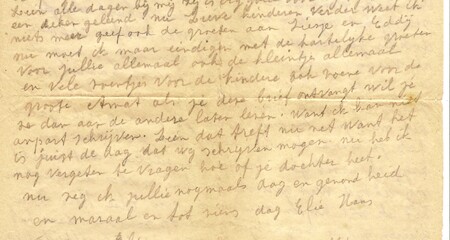 alle dagen bij mij
een deken gestuurd nu lieve kinderen verder weet ik
niets meer geef ook de groeten aan en Eddij
nu moet ik maar eindigen met de hartelijke groeten
voor jullie allemaal ook de kleintje allemaal
en vele zoentjes voor de kindere ook voor de
groote als je deze brief ontvangt wil je
ze dan aan de andere laten lezen. Want ik kan niet
apart schrijven. dat treft nu net want het
is juist de dag dat wij schrijven mogen nu heb ik
nog vergeten te vragen hoe of je dochter heet.
nu zeg ik jullie nogmaals dag en gezondheid
en en tot ziens dag